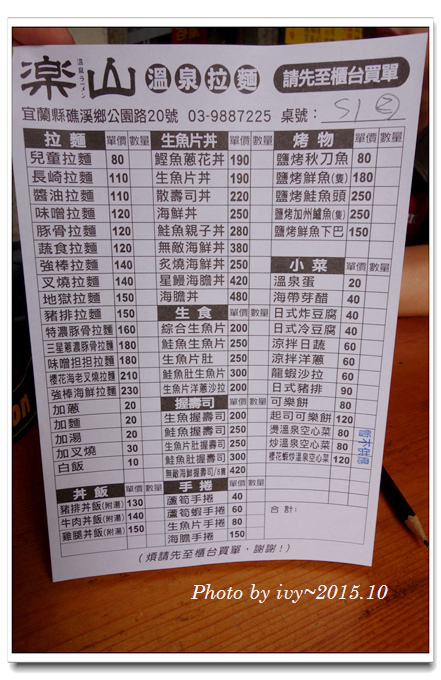 楽山 温泉ラーメン 溫泉拉麵 請先至櫃台買單
宜蘭縣礁溪鄉公園路20號 03-9887225 桌號: S1 ②
拉麵 單價 數量
兒童拉麵 80
長崎拉麵 110
醬油拉麵 110
味噌拉麵 120
豚骨拉麵 120
蔬食拉麵 120
強棒拉麵 140
叉燒拉麵 140
地獄拉麵 150
豬排拉麵 150
特濃豚骨拉麵 160
三星蔥濃豚骨拉麵 180
味噌担担拉麵 180
櫻花海老叉燒拉麵 210
強棒海鮮拉麵 230
加蔥 20
加麵 20
加湯 20
加叉燒 30
白飯 10
丼飯 單價 數量
豬排丼飯(附湯) 130
牛肉丼飯(附湯) 140
雞腿丼飯(附湯) 150
生魚片丼 單價 數量
鰹魚蔥花丼 190
生魚片丼 190
散壽司丼 220
海鮮丼 250
鮭魚親子丼 280
無敵海鮮丼 380
炙燒海鮮丼 250
星鰻海膽丼 420
海膽丼 480
生食 單價 數量
綜合生魚片 200
鮭魚生魚片 250
生魚片肚 250
鮭魚肚生魚片 300
生魚片洋蔥沙拉 200
握壽司 單價 數量
生魚握壽司 200
鮭魚握壽司 250
生魚片肚握壽司 250
鮭魚肚握壽司 300
無敵海鮮握壽司/8貫 420
手捲 單價 數量
蘆筍手捲 40
蘆筍蝦手捲 60
生魚片手捲 80
海膽手捲 150
烤物 單價 數量
鹽烤秋刀魚 80
鹽烤鮮魚(隻) 180
鹽烤鮭魚頭 250
鹽烤加州鱸魚(隻) 250
鹽烤鮮魚下巴 150
小菜 單價 數量
溫泉蛋 20
海帶芽醋 40
日式炸豆腐 40
日式冷豆腐 40
涼拌日蔬 60
涼拌洋蔥 60
龍蝦沙拉 60
日式豬排 90
可樂餅 80
起司可樂餅 120
燙溫泉空心菜 80
炒溫泉空心菜 80
櫻花蝦炒溫泉空心菜 120
暫不供應
合計:
(煩請先至櫃台買單,謝謝!)
Photo by ivy~2015.10